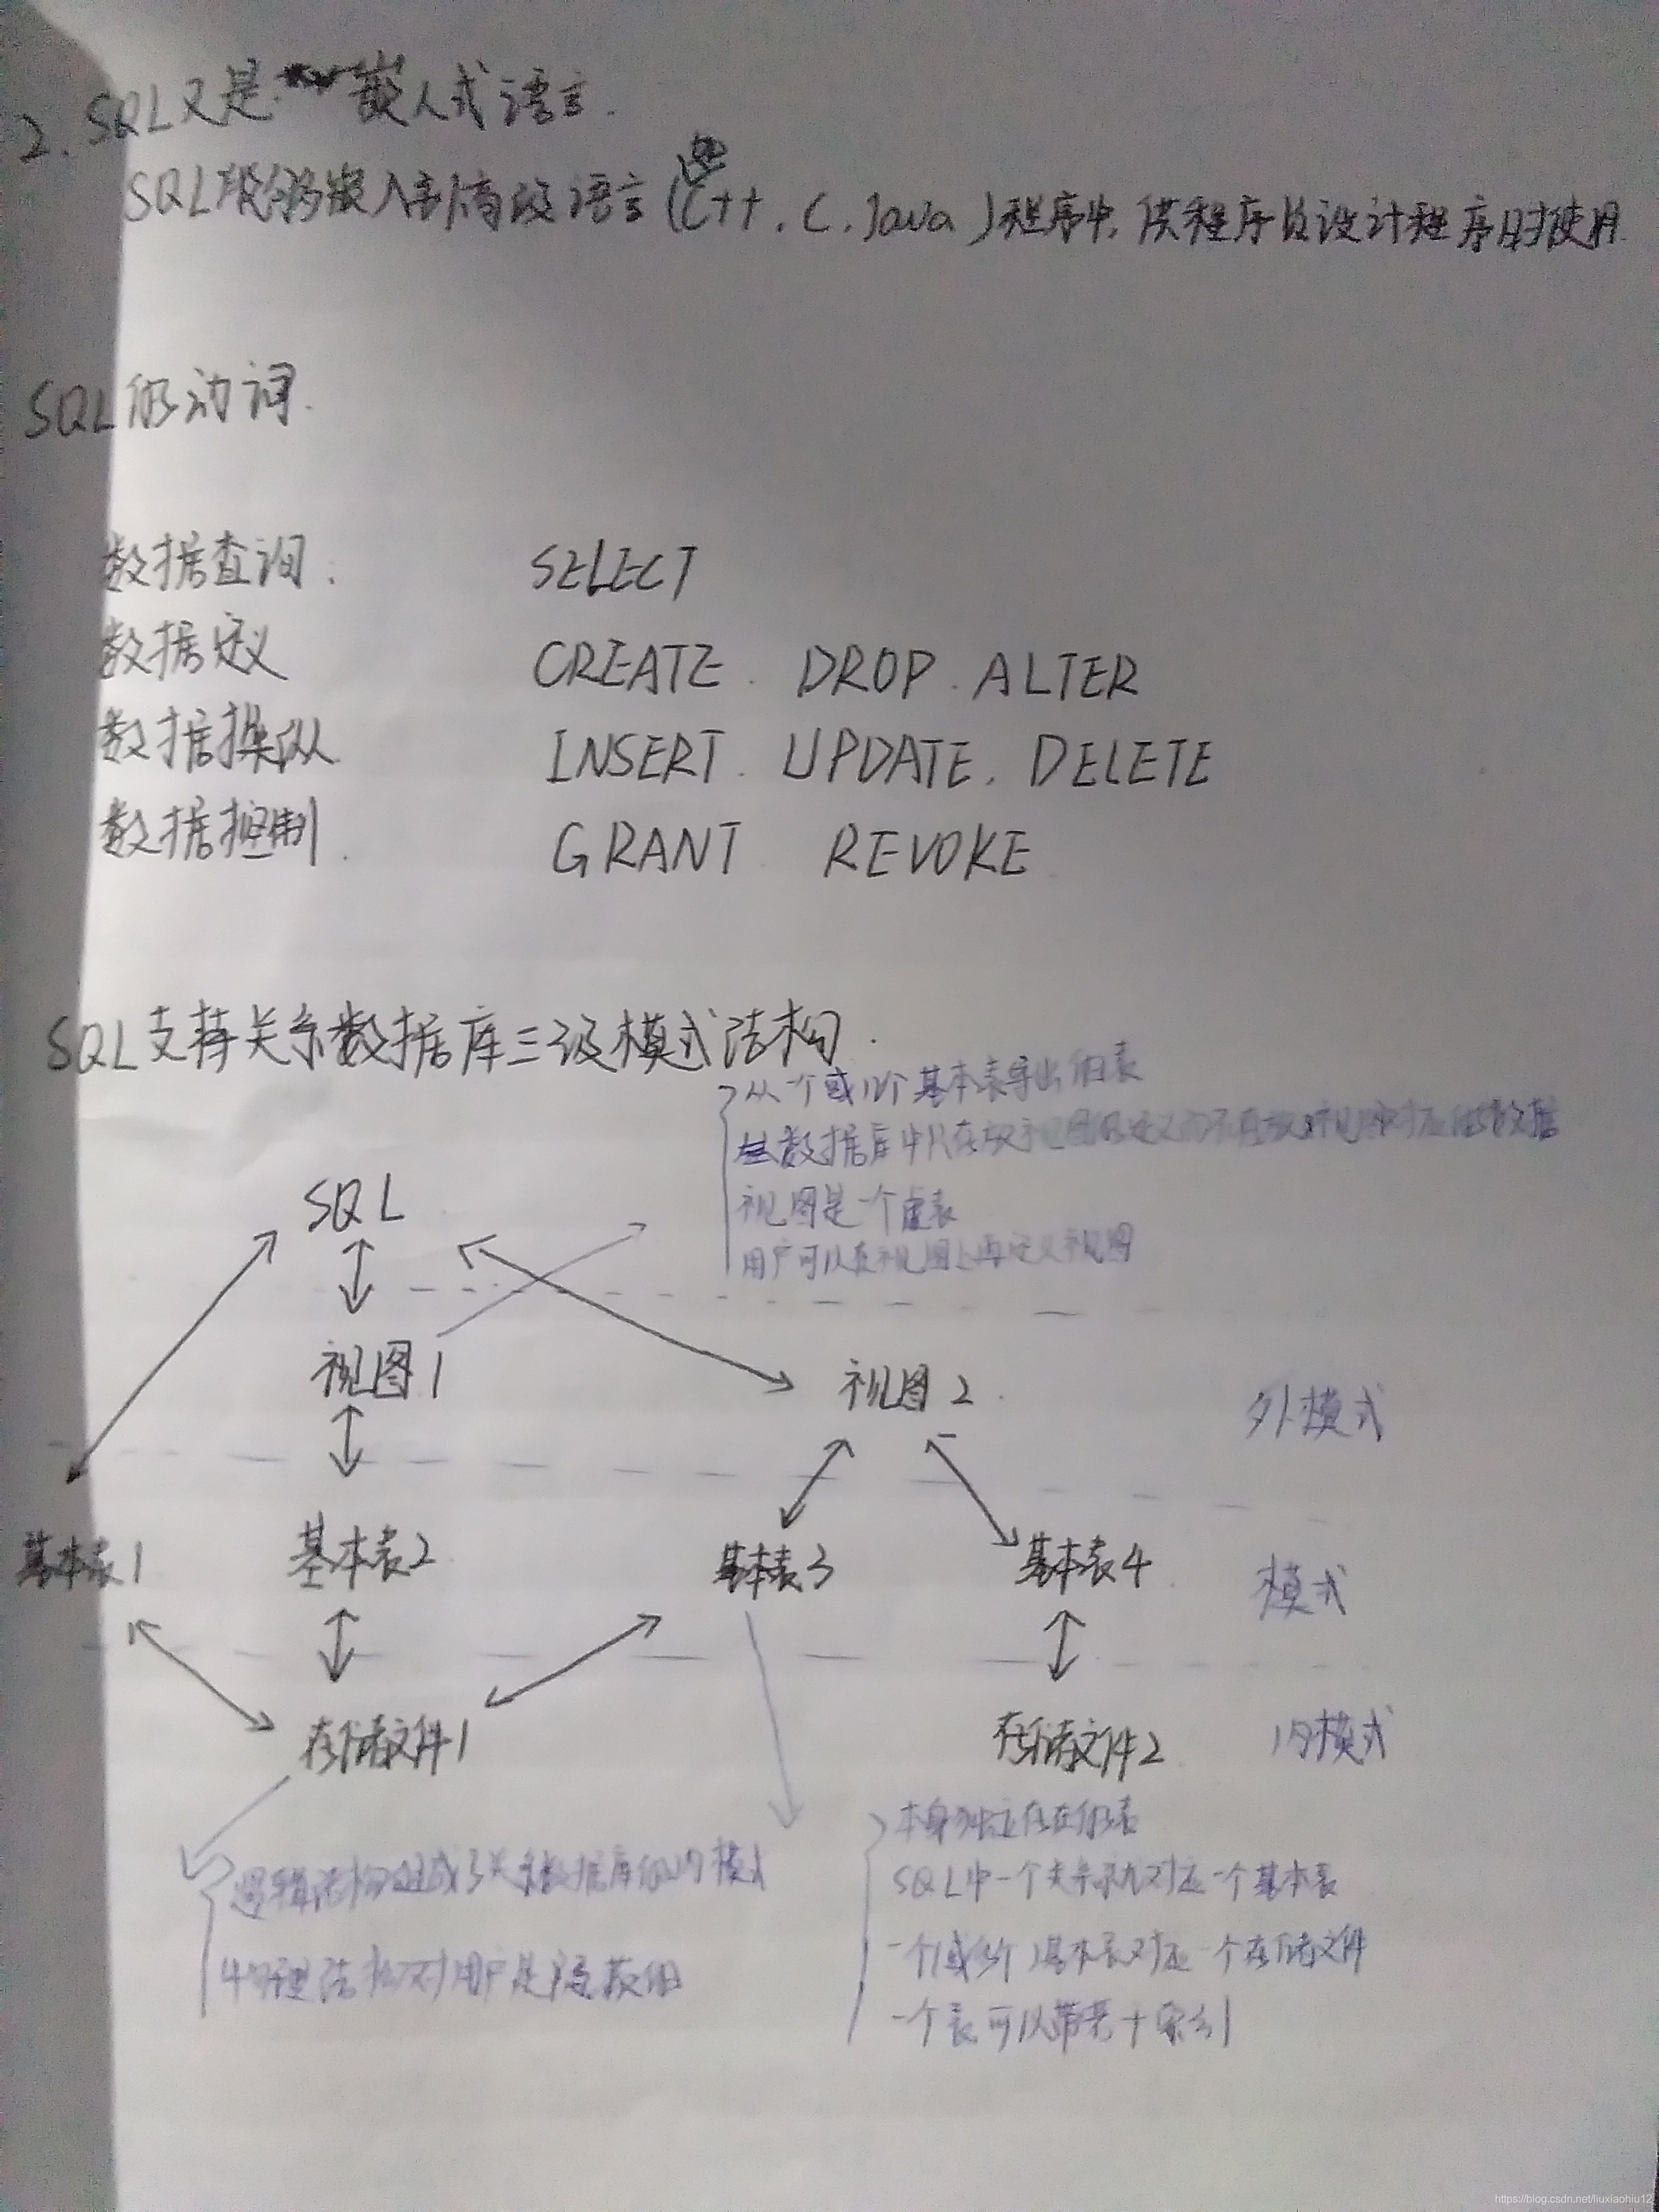 2. SQL又是嵌入式语言.
SQL能够嵌入到高级语言(C++、C、Java)程序中,供程序员设计程序时使用.
SQL的动词.
数据查询: SELECT
数据定义 CREATE、DROP、ALTER
数据操纵 INSERT、UPDATE、DELETE
数据控制. GRANT REVOKE
SQL支持关系数据库三级模式结构.
从一个或几个基本表导出的表
数据库中只存放视图的定义而不存放视图对应的数据
视图是一个虚表
用户可以在视图上再定义视图
SQL
视图1 视图2. 外模式
基本表1 基本表2 基本表3 基本表4. 模式
存储文件1 存储文件2 内模式
逻辑结构组成了关系数据库的内模式
物理结构对用户是隐蔽的
本身独立存在的表
SQL中一个关系就对应一个基本表
一个(或多个)基本表对应一个存储文件
一个表可以带若干索引
https://blog.csdn.net/liuxiaohiu12